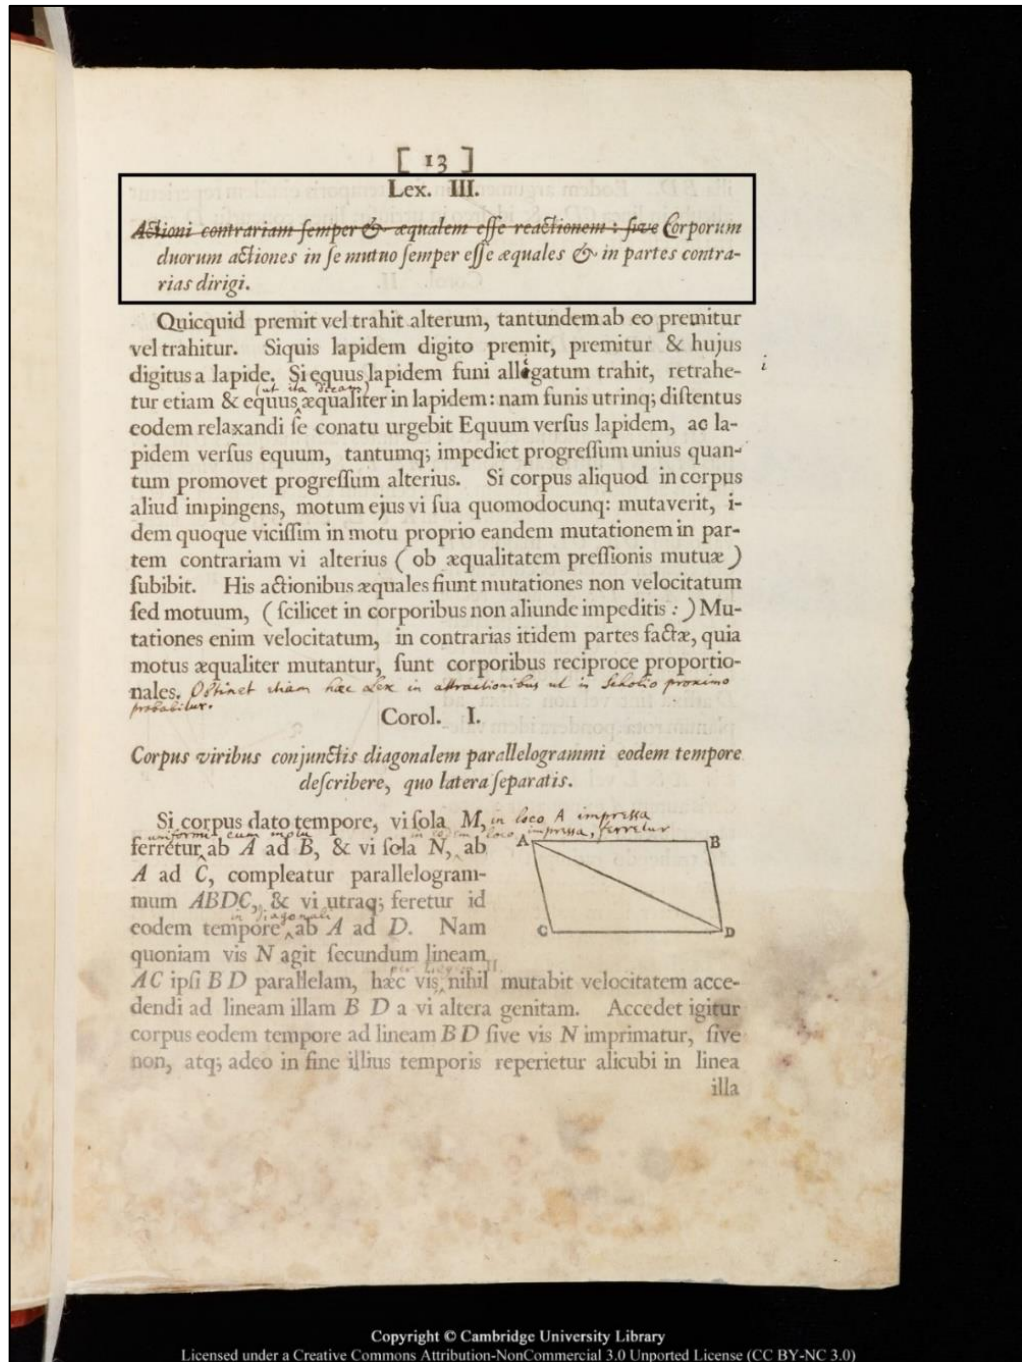 [ 13 ]
Lex. III.
Actioni contrariam ſemper & æqualem eſſe reactionem : ſive Corporum
duorum actiones in ſe mutuo ſemper eſſe æquales & in partes contra-
rias dirigi.
Quicquid premit vel trahit alterum, tantundem ab eo premitur
vel trahitur. Siquis lapidem digito premit, premitur & hujus
i
digitus a lapide. Si equus lapidem funi alligatum trahit, retrahe-
(ut ita dicam)
tur etiam & equus æqualiter in lapidem: nam funis utrinq; diſtentus
eodem relaxandi ſe conatu urgebit Equum verſus lapidem, ac la-
pidem verſus equum, tantumq; impediet progreſſum unius quan-
tum promovet progreſſum alterius. Si corpus aliquod in corpus
aliud impingens, motum ejus vi ſua quomodocunq: mutaverit, i-
dem quoque viciſſim in motu proprio eandem mutationem in par-
tem contrariam vi alterius ( ob æqualitatem preſſionis mutuæ )
ſubibit. His actionibus æquales fiunt mutationes non velocitatum
ſed motuum, ( ſcilicet in corporibus non aliunde impeditis : ) Mu-
tationes enim velocitatum, in contrarias itidem partes factæ, quia
motus æqualiter mutantur, ſunt corporibus reciproce proportio-
nales. Obtinet etiam hæc Lex in attractionibus ut in Scholio proximo
probabitur.
Corol. I.
Corpus viribus conjunctis diagonalem parallelogrammi eodem tempore
deſcribere, quo latera ſeparatis.
Si corpus dato tempore, vi ſola M, in loco A impreſſa
uniformi cum motu in eodem loco impreſſa, ferretur
ferretur ab A ad B, & vi ſola N, ab
A B
A ad C, compleatur parallelogram-
mum ABDC, & vi utraq; feretur id
in diagonali
eodem tempore ab A ad D. Nam
C D
quoniam vis N agit ſecundum lineam
per Legem II.
AC ipſi B D parallelam, hæc vis nihil mutabit velocitatem acce-
dendi ad lineam illam B D a vi altera genitam. Accedet igitur
corpus eodem tempore ad lineam B D ſive vis N imprimatur, ſive
non, atq; adeo in fine illius temporis reperietur alicubi in linea
illa
Copyright © Cambridge University Library
Licensed under a Creative Commons Attribution-NonCommercial 3.0 Unported License (CC BY-NC 3.0)